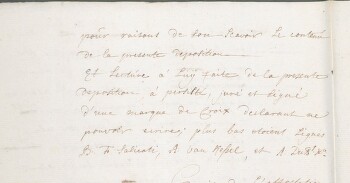 pour raisons de son scavoir le contenu
de la presente deposition
Et Lecture à Luy faite de la presente
deposition à persisté, juré et signé
d'une marque de Croix declarant ne
pouvoir ecrire; plus bas etoient signés
A van et